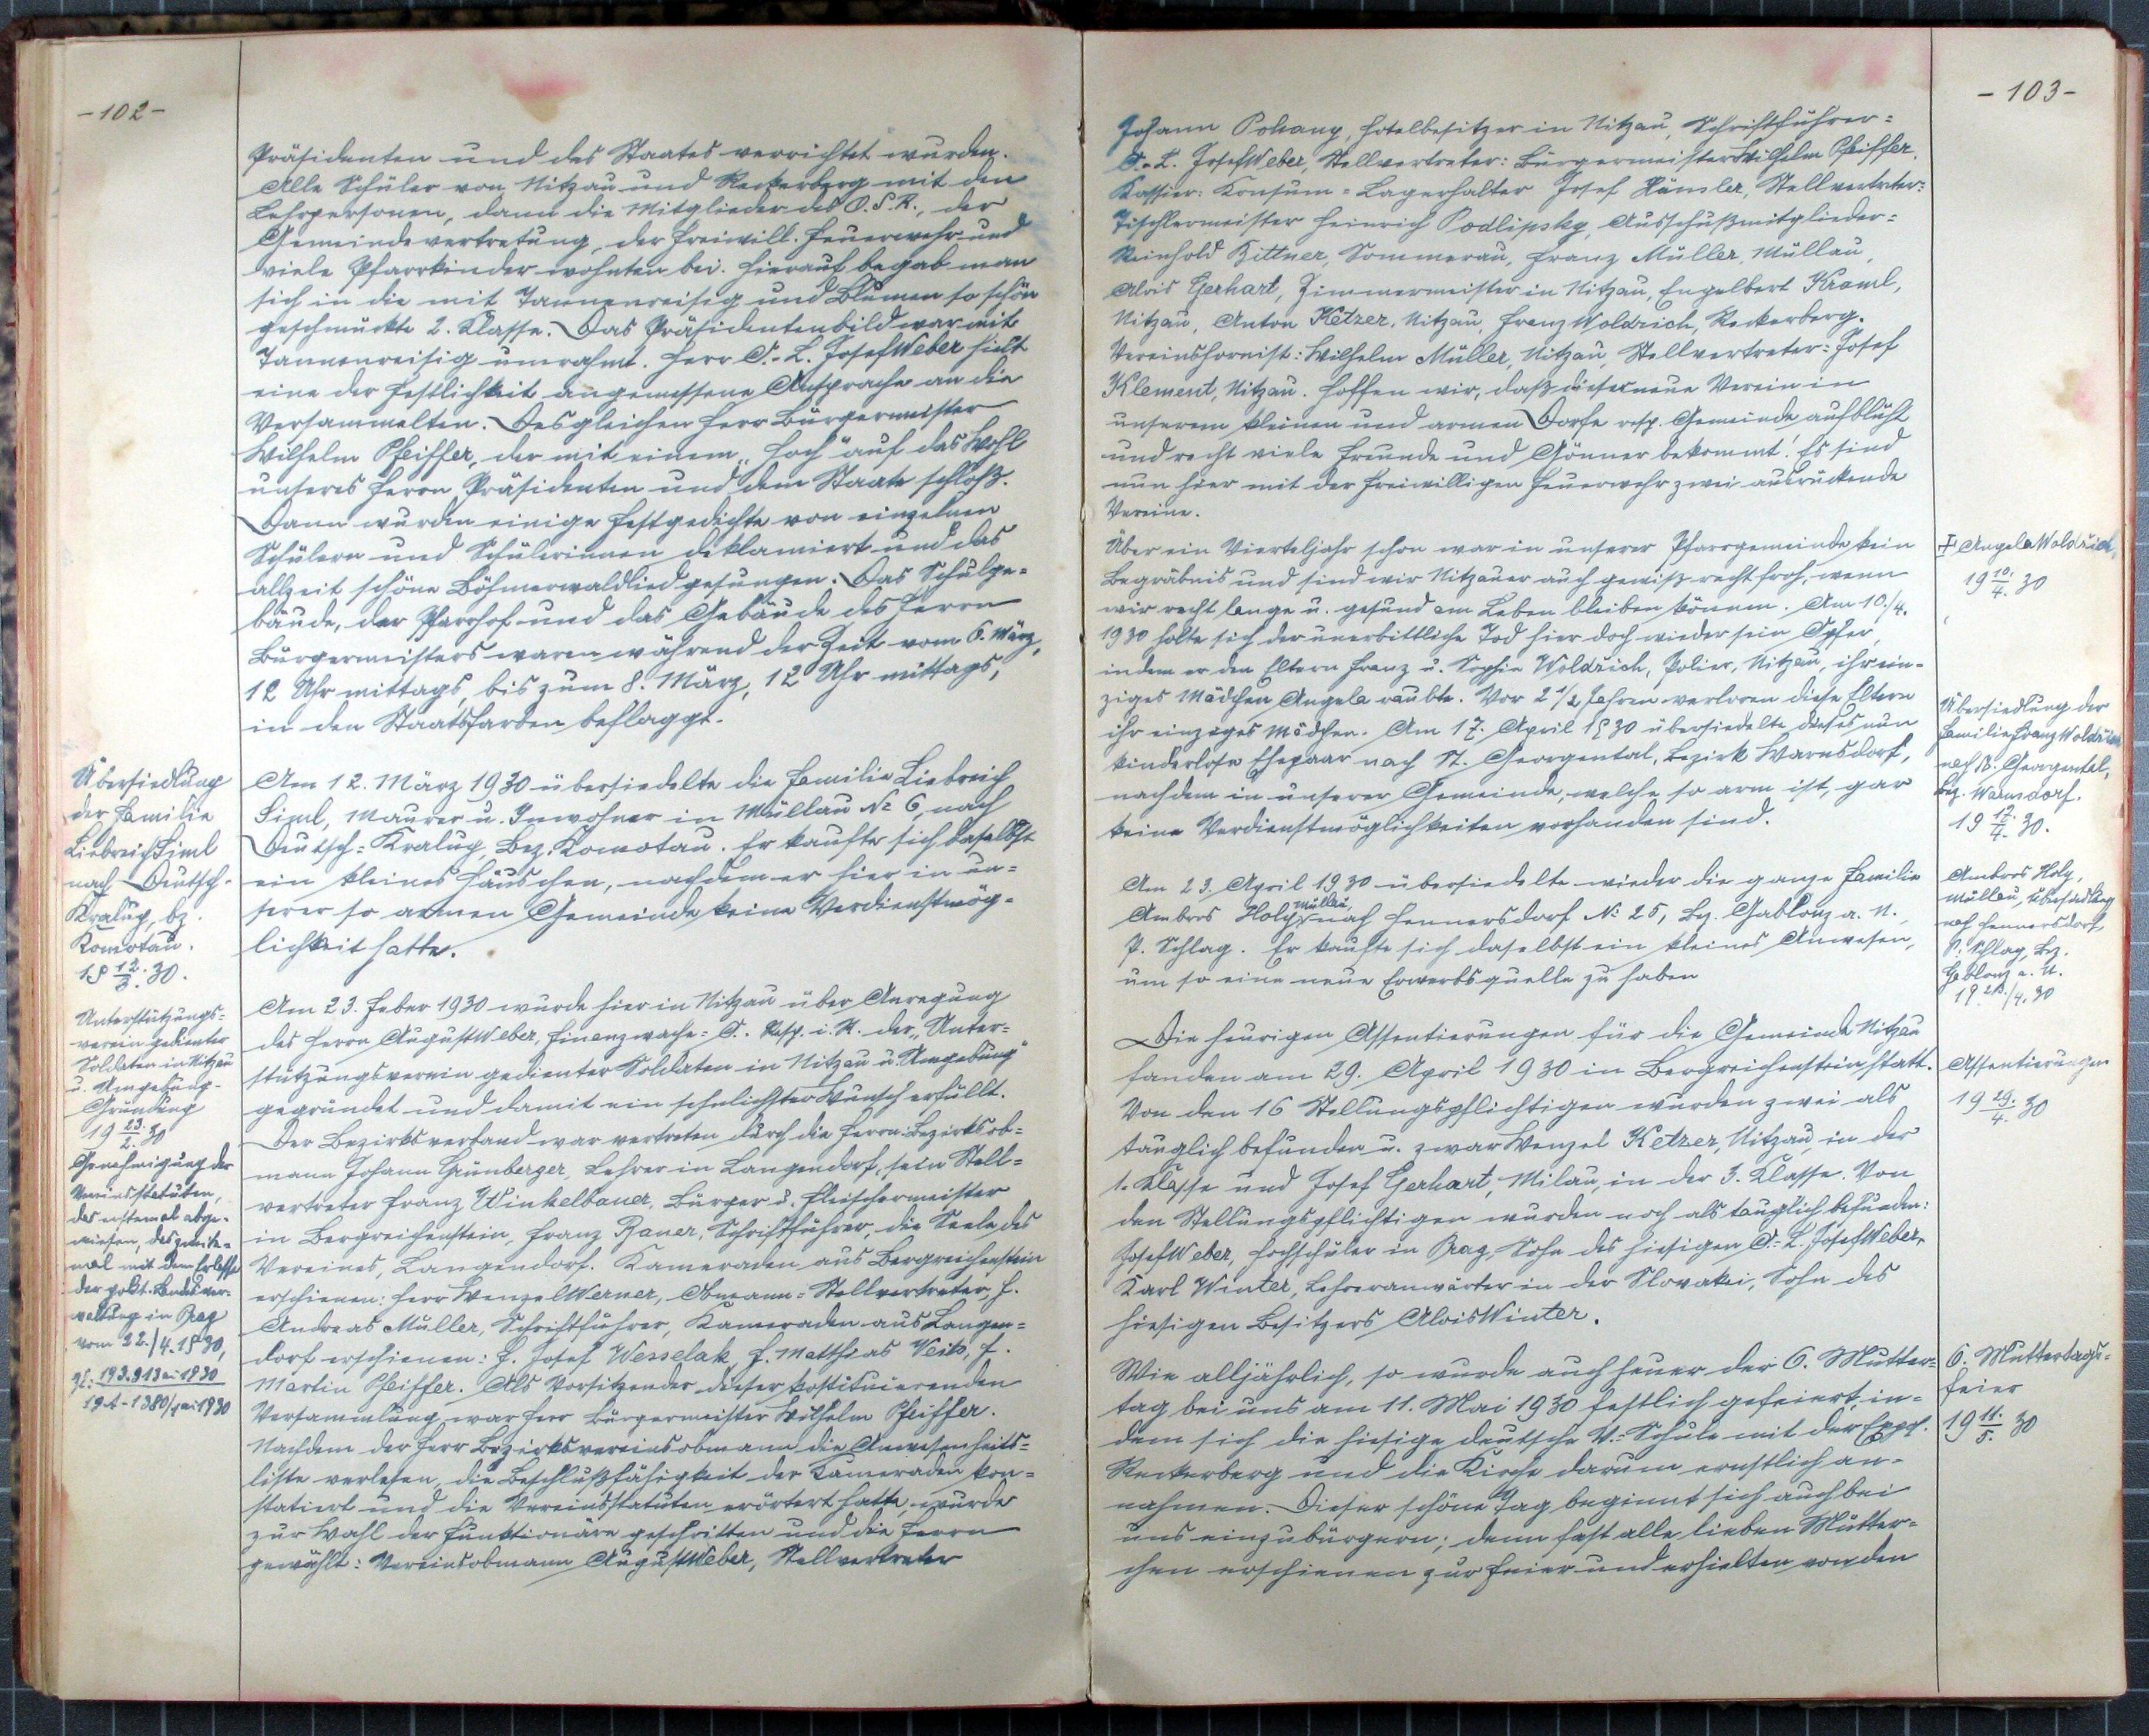 -102-
Präsidenten und des Staates verrichtet wurden.
Alle Schüler von Nitzau und Rekerberg mit den
Lehrpersonen, dann die Mitglieder des O.S.R., der
Gemeindevertretung, der freiwill. Feuerwehr und
viele Pfarrkinder wohnten bei. Hierauf begab man
sich in die mit Tannenreisig und Blumen so schön
geschmückte 2. Klasse. Das Präsidentenbild war mit
Tannenreisig umrahmt. Herr O.-L. Josef Weber hielt
eine der Festlichkeit angemessene Ansprache an die
Versammelten. Desgleichen Herr Bürgermeister
Wilhelm Pfeiffer, der mit einem „Hoch“ auf das Wohl
unseres Herrn Präsidenten und dem Staate schloß.
Dann wurden einige Festgedichte von einzelnen
Schülern und Schülerinnen deklamiert und das
allzeit schöne Böhmerwaldlied gesungen. Das Schulge-
bäude, der Pfarrhof und das Gebäude des Herrn
Bürgermeisters waren während der Zeit vom 6. März,
12 Uhr mittags, bis zum 8. März, 12 Uhr mittags,
in den Staatsfarben beflaggt.
Übersiedlung
der Familie
Liebreich Siml
nach Deutsch-
Kralup, bz.
Komotau.
19 12./3. 30.
Am 12. März 1930 übersiedelte die Familie Liebreich
Siml, Maurer u. Inwohner in Müllau No 6, nach
Deutsch-Kralup, Bez. Komotau. Er kaufte sich daselbst
ein kleines Häuschen, nachdem er hier in un-
serer so armen Gemeinde keine Verdienstmög-
lichkeit hatte.
Unterstützungs-
verein gedienter
Soldaten in Nitzau
u. Umgebung-
Gründung
19 23./2. 30
Genehmigung der
Vereinsstatuten,
das erstemal abge-
wiesen, das zweite-
mal mit dem Erlasse
der polit. Landesver-
waltung in Prag
vom 22./4. 1930,
Zl. 193.913 ai 1930
19A-1380/1 ai 1930
Am 23. Feber 1930 wurde hier in Nitzau über Anregung
des Herrn August Weber, Finanzwache-O.-Resp. i. R. der „Unter-
stützungsverein gedienter Soldaten in Nitzau u. Umgebung“
gegründet und damit ein sehnlichster Wunsch erfüllt.
Der Bezirksverband war vertreten durch die Herrn: Bezirksob-
mann Johann Grünberger, Lehrer in Langendorf, sein Stell-
vertreter Franz Winkelbauer, Bürger u. Fleischermeister
in Bergreichenstein, Franz Raner, Schriftführer, die Seele des
Vereines, Langendorf. Kameraden aus Bergreichenstein
erschienen: Herr Wenzel Werner, Obmann-Stellvertreter, H.
Andreas Müller, Schriftführer, Kameraden aus Langen-
dorf erschienen: H. Josef Wesselak, H. Matthias Veits, H.
Martin Pfeiffer. Als Vorsitzender dieser kostituierenden
Versammlung war Herr Bürgermeister Wilhelm Pfeiffer.
Nachdem der Herr Bezirksvereinsobmann die Anwesenheits-
liste verlesen, die Beschlußfähigkeit der Kameraden kon-
statiert und die Vereinsstatuten erörtert hatte, wurde
zur Wahl der Funktionäre geschritten und die Herrn
gewählt: Vereinsobmann August Weber, Stellvertreter
-103-
Johann Pokany, Hotelbesitzer in Nitzau, Schriftführer-
O.-L. Josef Weber, Stellvertreter: Bürgermeister Wilhelm Pfeiffer,
Kassier: Konsum-Lagerhalter Josef Hänsler, Stellvertreter:
Tischlermeister Heinrich Podlipsky, Ausschußmitglieder-
Reinhold Bittner, Sommerau, Franz Müller, Müllau,
Alois Gerhart, Zimmermeister in Nitzau, Engelbert Kraml,
Nitzau, Anton Ketzer, Nitzau, Franz Woldrich, Rekerberg.
Vereinshornist: Wilhelm Müller, Nitzau, Stellvertreter: Josef
Klement, Nitzau. Hoffen wir, daß dieser neue Verein in
unserem kleinen und armen Dorfe resp. Gemeinde aufblüht
und recht viele Freunde und Gönner bekommt! Es sind
nun hier mit der freiwilligen Feuerwehr zwei ausrückende
Vereine.
Über ein Vierteljahr schon war in unserer Pfarrgemeinde kein
Begräbnis und sind wir Nitzauer auch gewiß recht froh, wenn
wir recht lange u. gesund am Leben bleiben können. Am 10./4.
1930 holte sich der unerbittliche Tod hier doch wieder sein Opfer,
indem er den Eltern Franz u. Sophie Woldrich, Polier, Nitzau, ihr ein-
ziges Mädchen Angela raubte. Vor 2 1/2 Jahren verloren diese Eltern
ihr einziges Mädchen. Am 17. April 1930 übersiedelte dieses nun
kinderlose Ehepaar nach St. Georgental, Bezirk Warnsdorf,
nachdem in unserer Gemeinde, welche so arm ist, gar
keine Verdienstmöglichkeiten vorhanden sind.
† Angela Woldrich,
19 10./4. 30
Übersiedlung der
Familie Franz Woldrich
nach St. Georgental,
Bez. Warnsdorf.
19 17./4. 30.
Am 23. April 1930 übersiedelte wieder die ganze Familie
Ambros Holy, Müllau, nach Hennersdorf No 25, Bez. Gablonz a. N.,
P. Schlag. Er kaufte sich daselbst ein kleines Anwesen,
um so eine neue Erwerbsquelle zu haben
Ambros Holy,
Müllau, übersiedlung
nach Hennersdorf,
P. Schlag, Bez.
Gablonz a. N.
19 23./4. 30
Die heurigen Assentierungen für die Gemeinde Nitzau
fanden am 29. April 1930 in Bergreichenstein statt.
Von den 16 Stellungspflichtigen wurden zwei als
tauglich befunden u. zwar Wenzel Ketzer, Nitzau, in der
1. Klasse und Josef Gerhart, Milau, in der 3. Klasse. Von
den Stellungspflichtigen wurden noch als tauglich befunden:
Josef Weber, Hochschüler in Prag, Sohn des hiesigen O.-L. Josef Weber,
Karl Winter, Lehreranwärter in der Slovakei, Sohn des
hiesigen Besitzers Alois Winter.
Assentierungen
19 29./4. 30
Wie alljährlich, so wurde auch heuer der 6. Mutter-
tag bei uns am 11. Mai 1930 festlich gefeiert, in-
dem sich die hiesige deutsche V.-Schule mit der Expos.
Rekerberg und die Kirche darum ernstlich an-
nahmen. Dieser schöne Tag beginnt sich auch bei
uns einzubürgern; denn fast alle lieben Mütter-
chen erschienen zur Feier und erhielten von den
6. Muttertags-
feier
19 11./5. 30